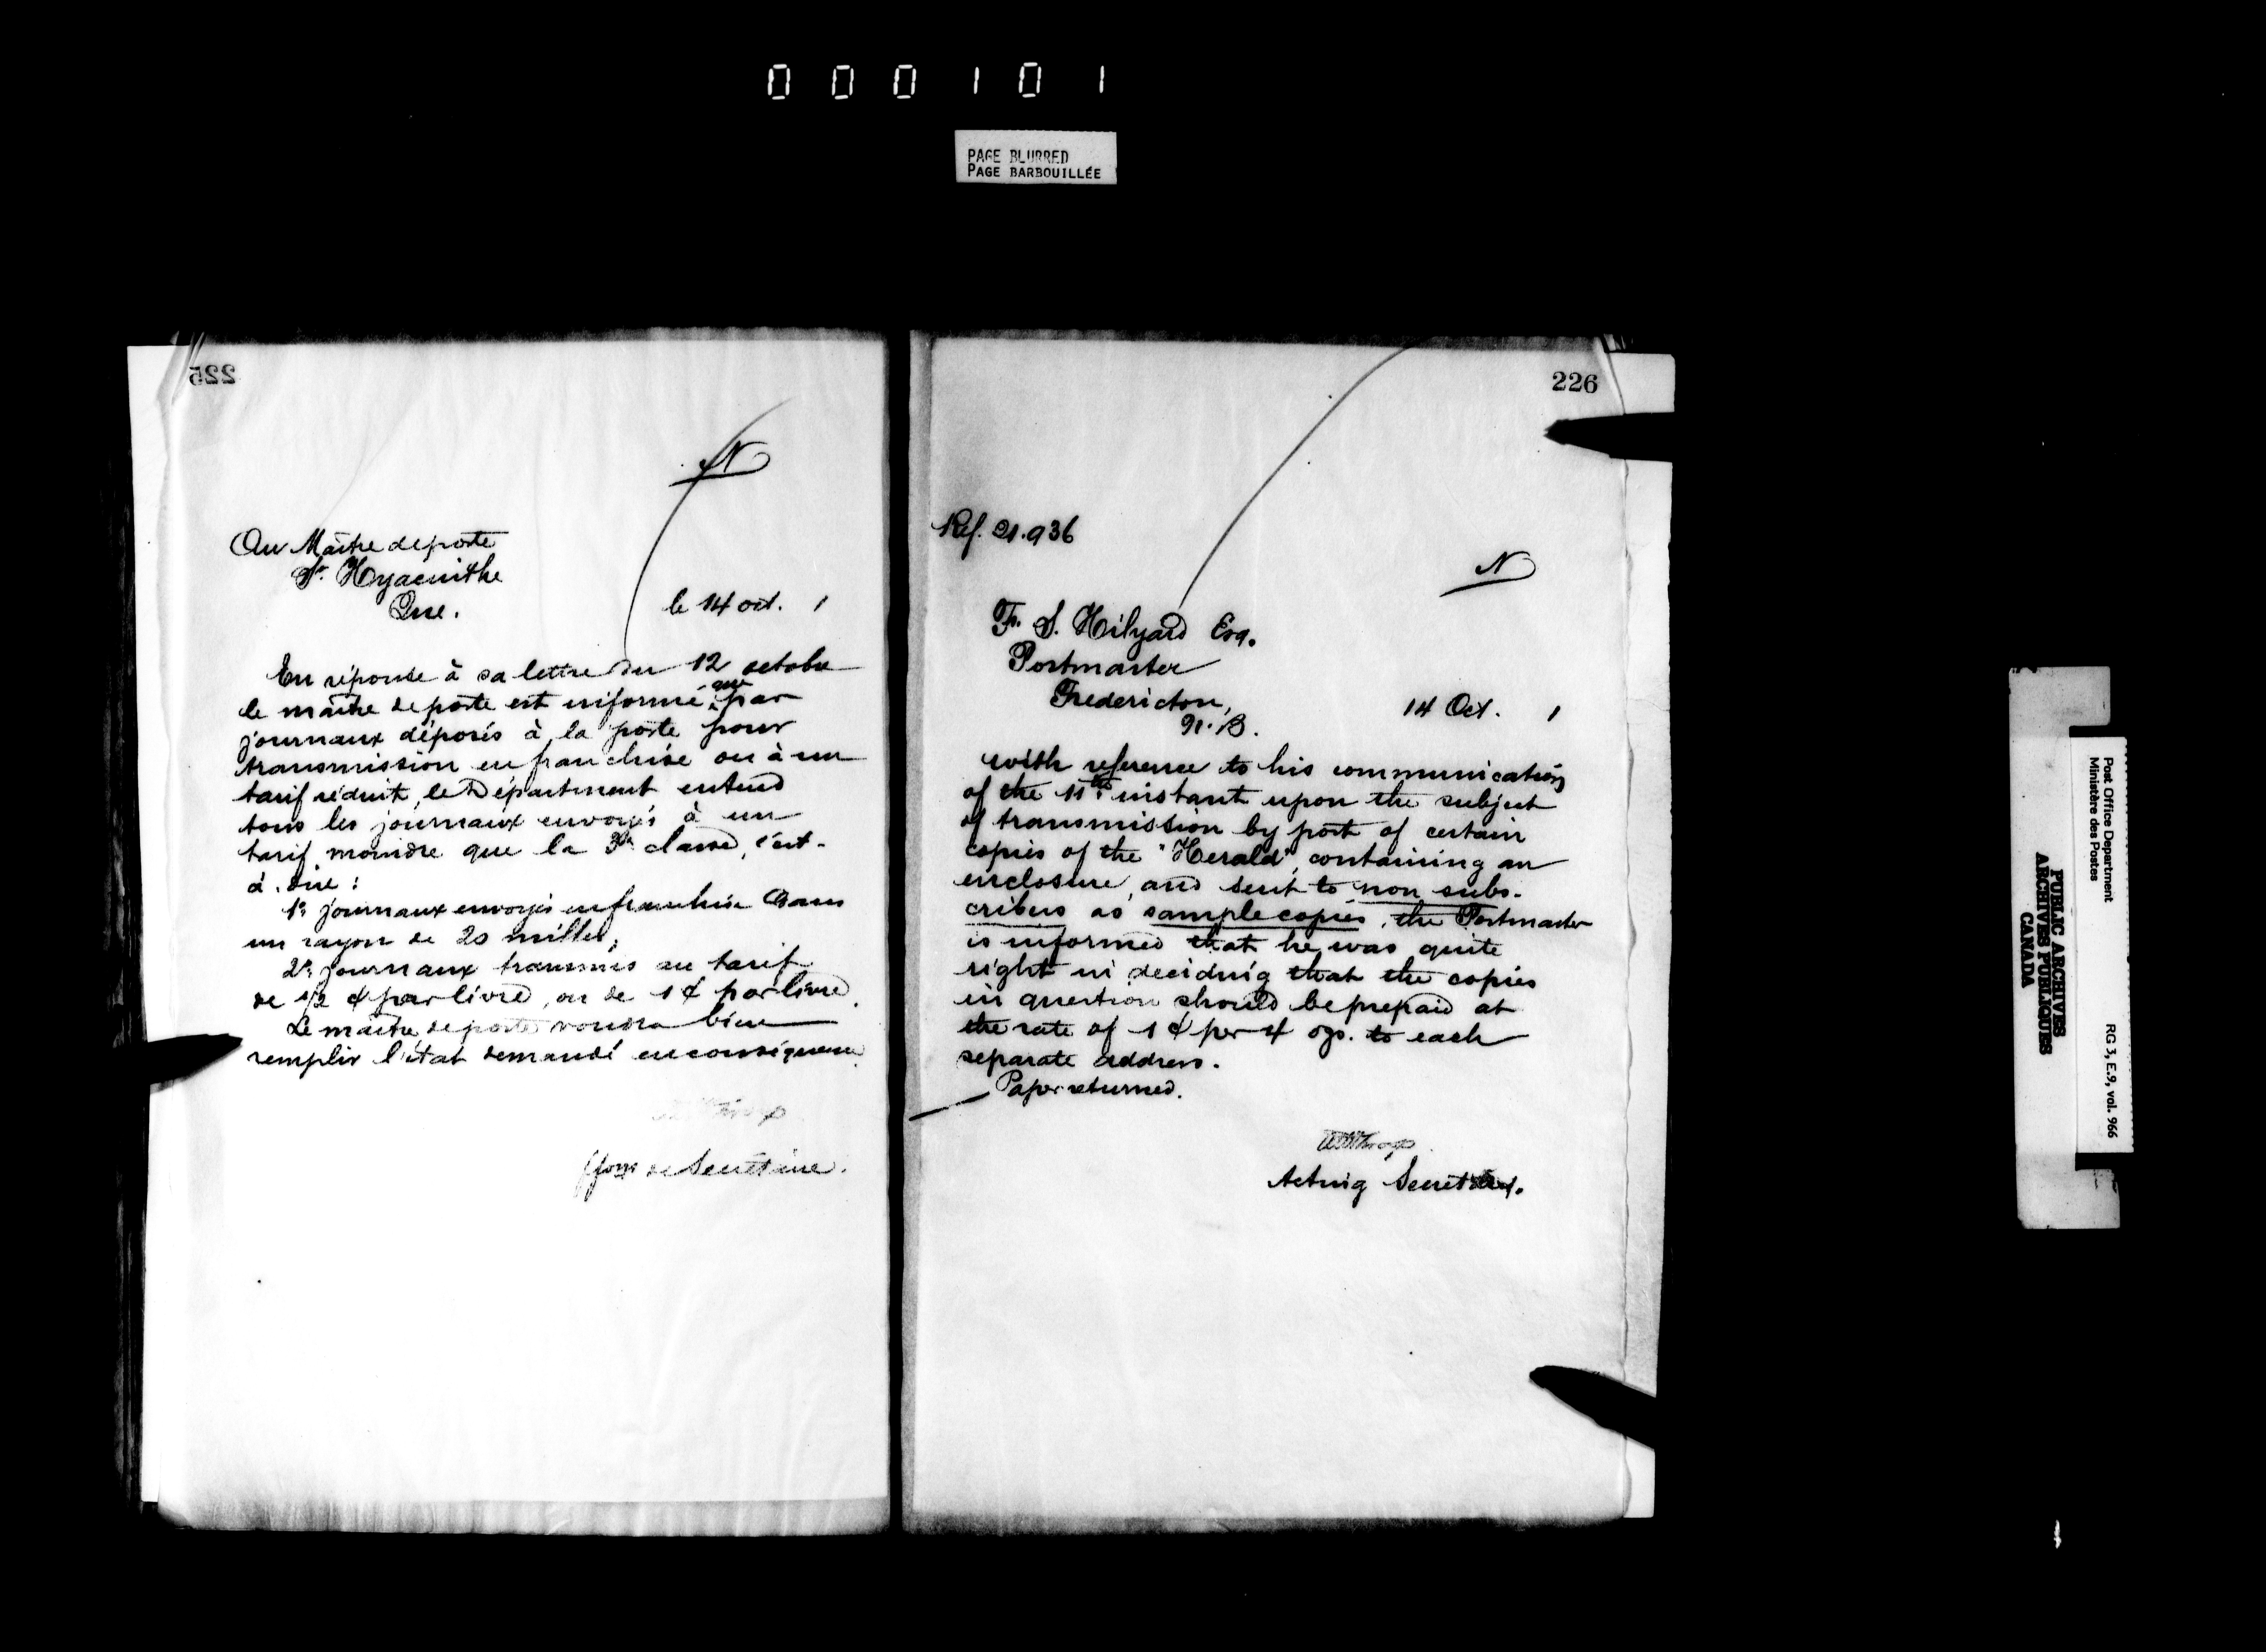 000101
PAGE BLURRED
PAGE BARBOUILLÉE
225
N
Au Maître de poste
St. Hyacinthe
Que.
le 14 oct. 1
En réponse à sa lettre du 12 octobre
le maître de poste est informé que par
journaux déposés à la poste pour
transmission en franchise ou à un
tarif réduit, le Départment entend
tous les journaux envoyés à un
tarif moindre que la 3e classe, c'est-
à-dire :
1º journaux envoyés en franchise dans
un rayon de 20 milles,
2º journaux transmis au tarif
de 1/2 ¢ par livre, ou de 1 ¢ par livre.
Le maître de poste voudra bien
remplir l'état demandé en conséquence.
de Secrétaire.
226
Ref. 21.936
N
F. S. Hilyard Esq.
Postmaster
Fredericton,
N.B.
14 Oct. 1
With reference to his communication
of the 11th instant upon the subject
of transmission by post of certain
copies of the "Herald", containing an
enclosure, and sent to non subs-
cribers as sample copies, the Postmaster
is informed that he was quite
right in deciding that the copies
in question should be prepaid at
the rate of 1 ¢ per 4 ozs. to each
separate address.
Paper returned.
Acting Secretary.
Post Office Department
Ministère des Postes
RG 3, E.9, vol. 966
PUBLIC ARCHIVES
ARCHIVES PUBLIQUES
CANADA